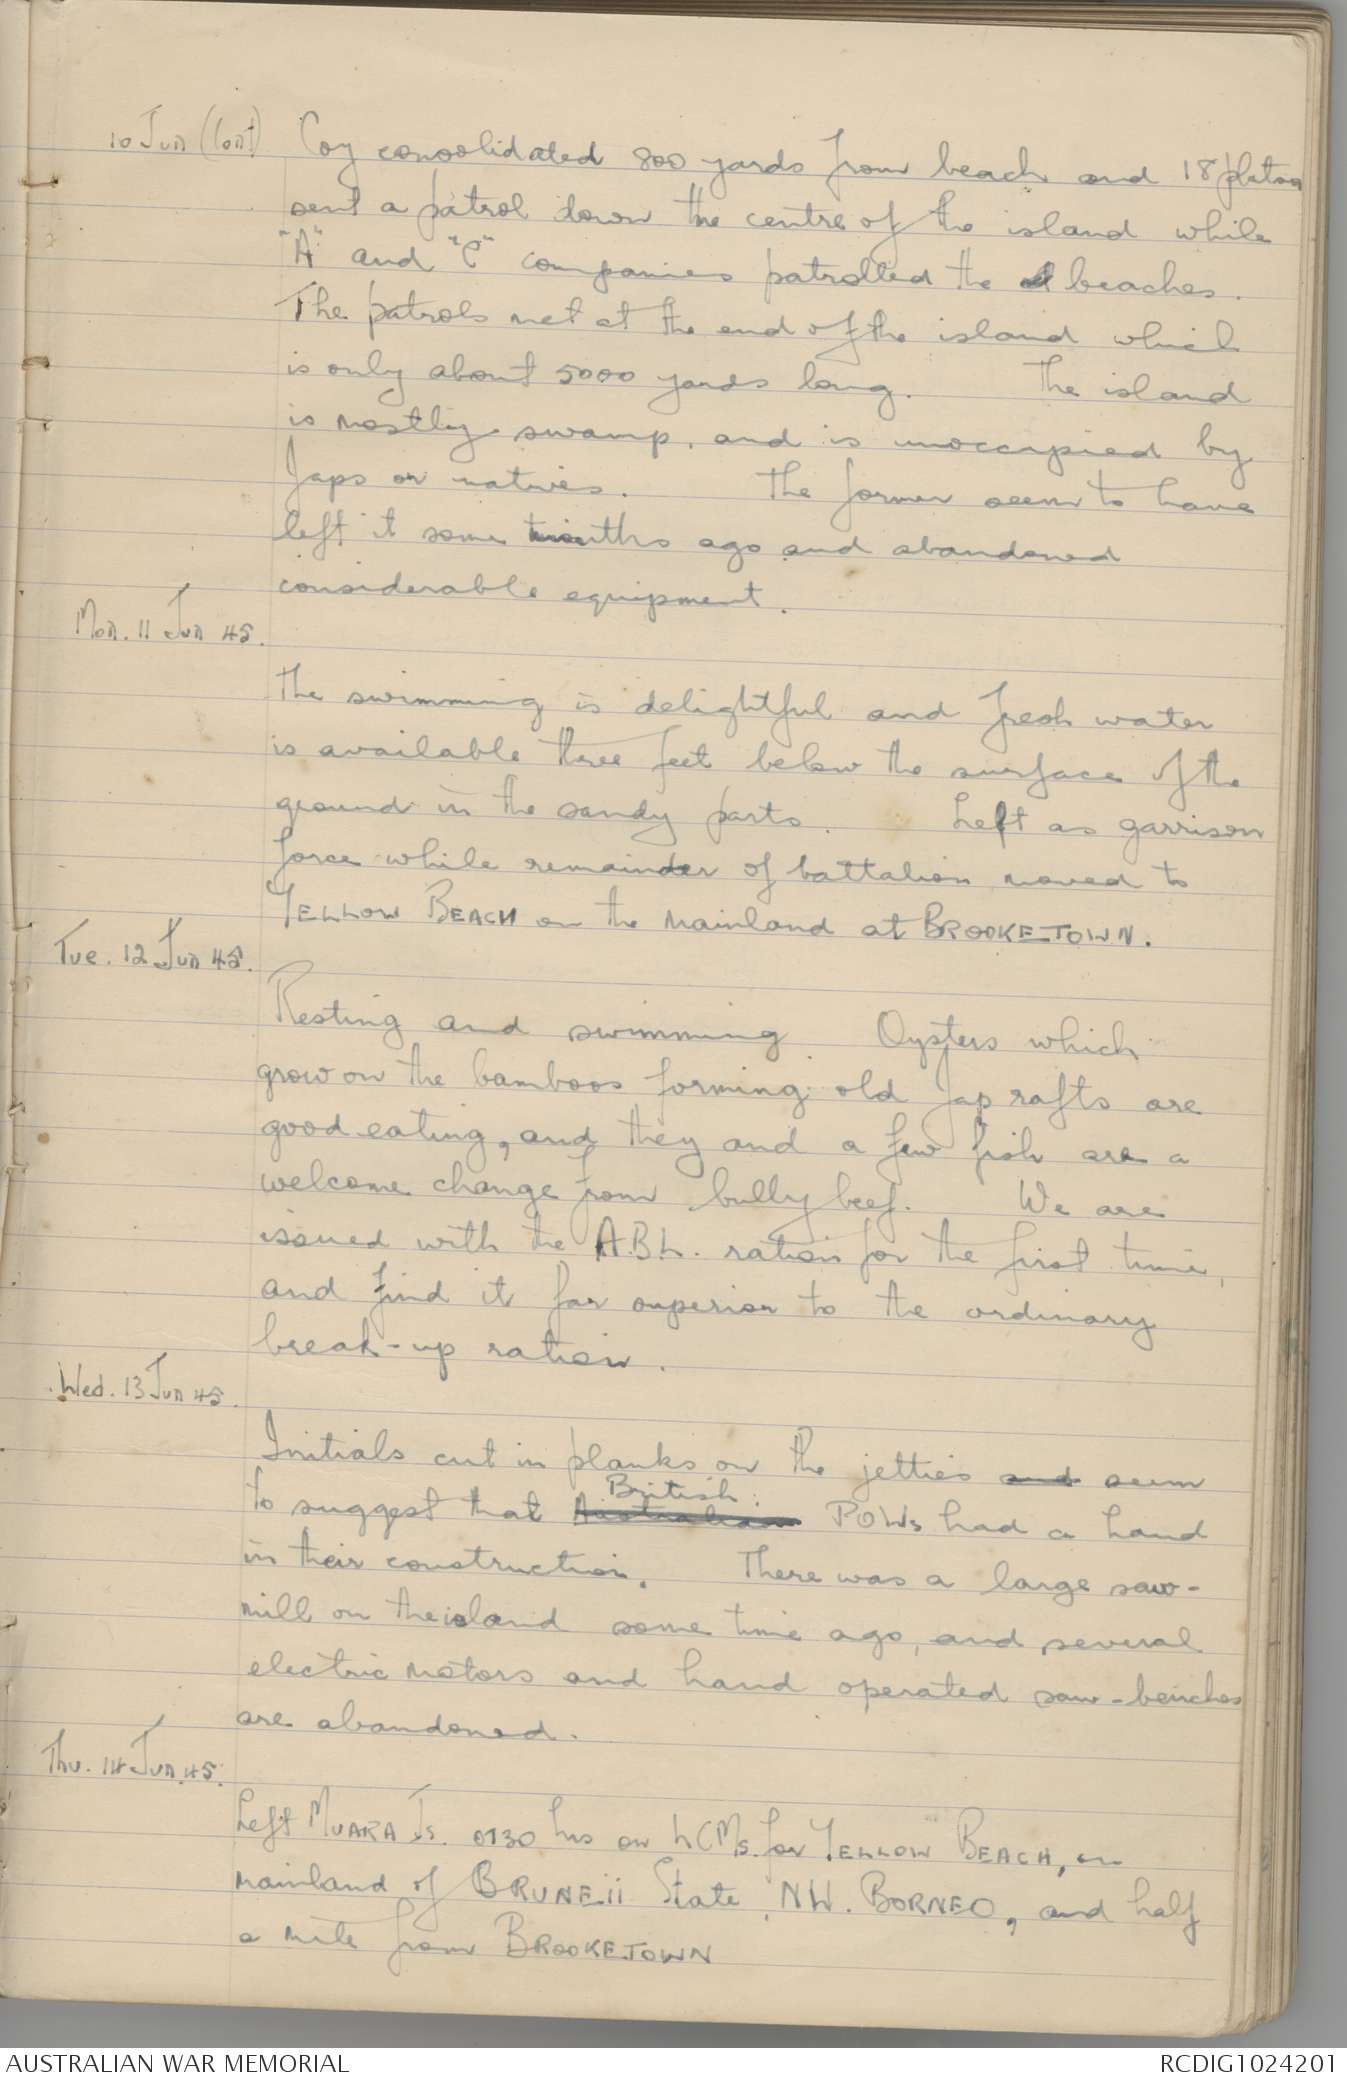 10 Jun (Cont) Coy consolidated 800 yards from beach and 18 platoon
sent a patrol down the centre of the island while
"A" and "C" companies patrolled the beaches.
The patrols met at the end of the island which
is only about 5000 yards long. The island
is mostly swamp, and is unoccupied by
Japs or natives. The former seem to have
left it some months ago and abandoned
considerable equipment.
Mon. 11 Jun 45.
The swimming is delightful and fresh water
is available three feet below the surface of the
ground in the sandy parts. Left as garrison
force while remainder of battalion moved to
YELLOW BEACH on the mainland at BROOKETOWN.
Tue. 12 Jun 45.
Resting and swimming. Oysters which
grow on the bamboos forming old Jap rafts are
good eating, and they and a few fish are a
welcome change from bully beef. We are
issued with the A.B.L. ration for the first time,
and find it far superior to the ordinary
break-up ration.
Wed. 13 Jun 45.
Initials cut in planks on the jetties and seem
British
to suggest that Australian POWs had a hand
in their construction. There was a large saw-
mill on the island some time ago, and several
electric motors and hand operated saw-benches
are abandoned.
Thu. 14 Jun 45.
Left MUARA Is. 0730 hrs on LCMs for YELLOW BEACH, on
mainland of BRUNEii State, NW. BORNEO, and half
a mile from BROOKETOWN
AUSTRALIAN WAR MEMORIAL
RCDIG1024201